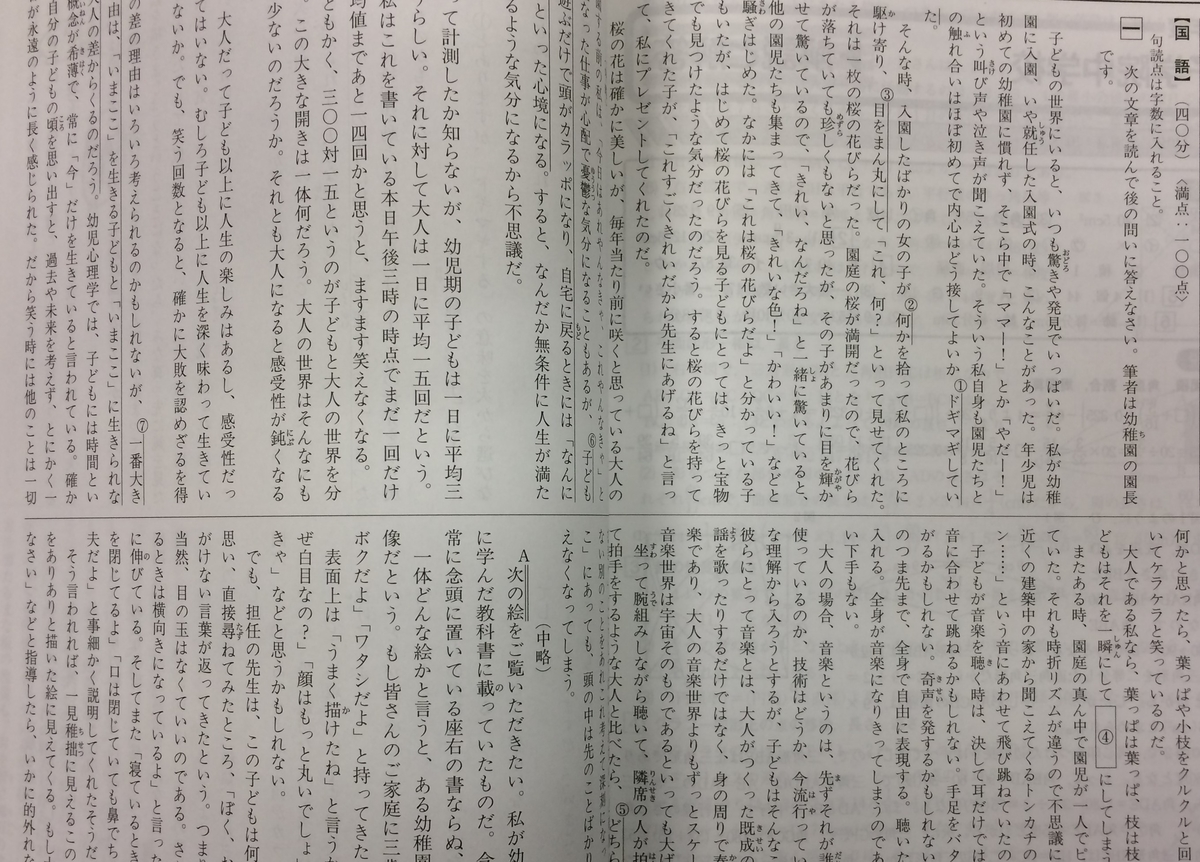 【国語】（四〇分）〈満点：一〇〇点〉
句読点は字数に入れること。
一 次の文章を読んで後の問いに答えなさい。筆者は幼稚園の園長
です。
子どもの世界にいると、いつも驚きや発見でいっぱいだ。私が幼稚
園に入園、いや就任した入園式の時、こんなことがあった。年少児は
初めての幼稚園に慣れず、そこら中で「ママー！」とか「やだー！」
という叫び声や泣き声が聞こえていた。そういう私自身も園児たちと
の触れ合いはほぼ初めてで内心はどう接してよいか①ドギマギしてい
た。
そんな時、入園したばかりの女の子が、②何かを拾って私のところに
駆け寄り、③目をまん丸にして「これ、何？」といって見せてくれた。
それは一枚の桜の花びらだった。園庭の桜が満開だったので、花びら
が落ちていても珍しくもないと思ったが、その子があまりに目を輝か
せて驚いているので、「きれい、なんだろね」と一緒に驚いていると、
他の園児たちも集まってきて、「きれいな色！」「かわいい！」などと
騒ぎはじめた。なかには「これは桜の花びらだよ」と分かっている子
もいたが、はじめて桜の花びらを見る子どもにとっては、きっと宝物
でも見つけたような気分だったのだろう。すると桜の花びらを持って
きてくれた子が、「これすごくきれいだから先生にあげるね」と言っ
て、私にプレゼントしてくれたのだ。
桜の花は確かに美しいが、毎年当たり前に咲くと思っている大人の
なった仕事が心配で憂鬱な気分になることもあるが、⑥子ども
遊ぶだけで頭がカラッポになり、自宅に戻るときには「なんに
といった心境になる。すると、なんだか無条件に人生が満た
るような気分になるから不思議だ。
って計測したか知らないが、幼児期の子どもは一日に平均三
すらしい。それに対して大人は一日に平均一五回だという。
私はこれを書いている本日午後三時の時点でまだ一回だけ
均値まであと一四回かと思うと、ますます笑えなくなる。
ともかく、三〇〇対一五というのが子どもと大人の世界を分
。この大きな開きは一体何だろう。大人の世界はそんなにも
少ないのだろうか。それとも大人になると感受性が鈍くなる
大人だって子ども以上に人生の楽しみはあるし、感受性だっ
てはいない。むしろ子ども以上に人生を深く味わって生きてい
ないか。でも、笑う回数となると、確かに大敗を認めざるを得
の差の理由はいろいろ考えられるのかもしれないが、⑦一番大き
由は、「いまここ」を生きる子どもと「いまここ」に生きられな
人の差からくるのだろう。幼児心理学では、子どもには時間とい
概念が希薄で、常に「今」だけを生きていると言われている。確か
自分の子どもの頃を思い出すと、過去や未来を考えず、とにかく一
が永遠のように長く感じられた。だから笑う時には他のことは一切
何かと思ったら、葉っぱや小枝をクルクルと回
いてケラケラと笑っているのだ。
大人である私なら、葉っぱは葉っぱ、枝は枝
どもはそれを一瞬にして ④ にしてしま
またある時、園庭の真ん中で園児が一人でピ
ていた。それも時折リズムが違うので不思議に
近くの建築中の家から聞こえてくるトンカチの
ン……」という音にあわせて飛び跳ねていた
子どもが音楽を聴く時は、決して耳だけでは
音に合わせて跳ねるかもしれない。手足をバタ
がるかもしれない。奇声を発するかもしれない
のつま先まで、全身で自由に表現する。聴いた
入れる。全身が音楽になりきってしまうのであ
い下手もない。
大人の場合、音楽というのは、先ずそれが誰
使っているのか、技術はどうか、今流行ってい
な理解から入ろうとするが、子どもはそんなこ
彼らにとって音楽とは、大人がつくった既成の
謡を歌ったりするだけではなく、身の周りで奏
楽であり、大人の音楽世界よりもずっとスケー
音楽世界は宇宙そのものであるといっても大げ
坐って腕組みしながら聴いて、隣席の人が拍
て拍手をするような大人と比べたら、⑤どちら
こ」にあっても、頭の中は先のことばかり
えなくなってしまう。
（中略）
A次の絵をご覧いただきたい。私が幼
に学んだ教科書に載っていたものだ。
常に念頭に置いている座右の書ならぬ、
一体どんな絵かと言うと、ある幼稚園
像だという。もし皆さんのご家庭に三歩
ボクだよ」「ワタシだよ」と持ってきた
表面上は「うまく描けたね」と言うか
ぜ白目なの？」「顔はもっと丸いでしょ
きゃ」などと思うかもしれない。
でも、担任の先生は、この子どもは何
思い、直接尋ねてみたところ、「ぼく、お
がけない言葉が返ってきたという。つまり
当然、目の玉はなくていいのである。さ
るときは横向きになっているよ」と言った
に伸びている。そしてまた「寝ているとき
を閉じてるよ」「口は閉じていても鼻でち
夫だよ」と事細かく説明してくれたそうだ
そう言われれば、一見稚拙に見えるこの
をありありと描いた絵に見えてくる。もし
なさい」などと指導したら、いかに的外れな